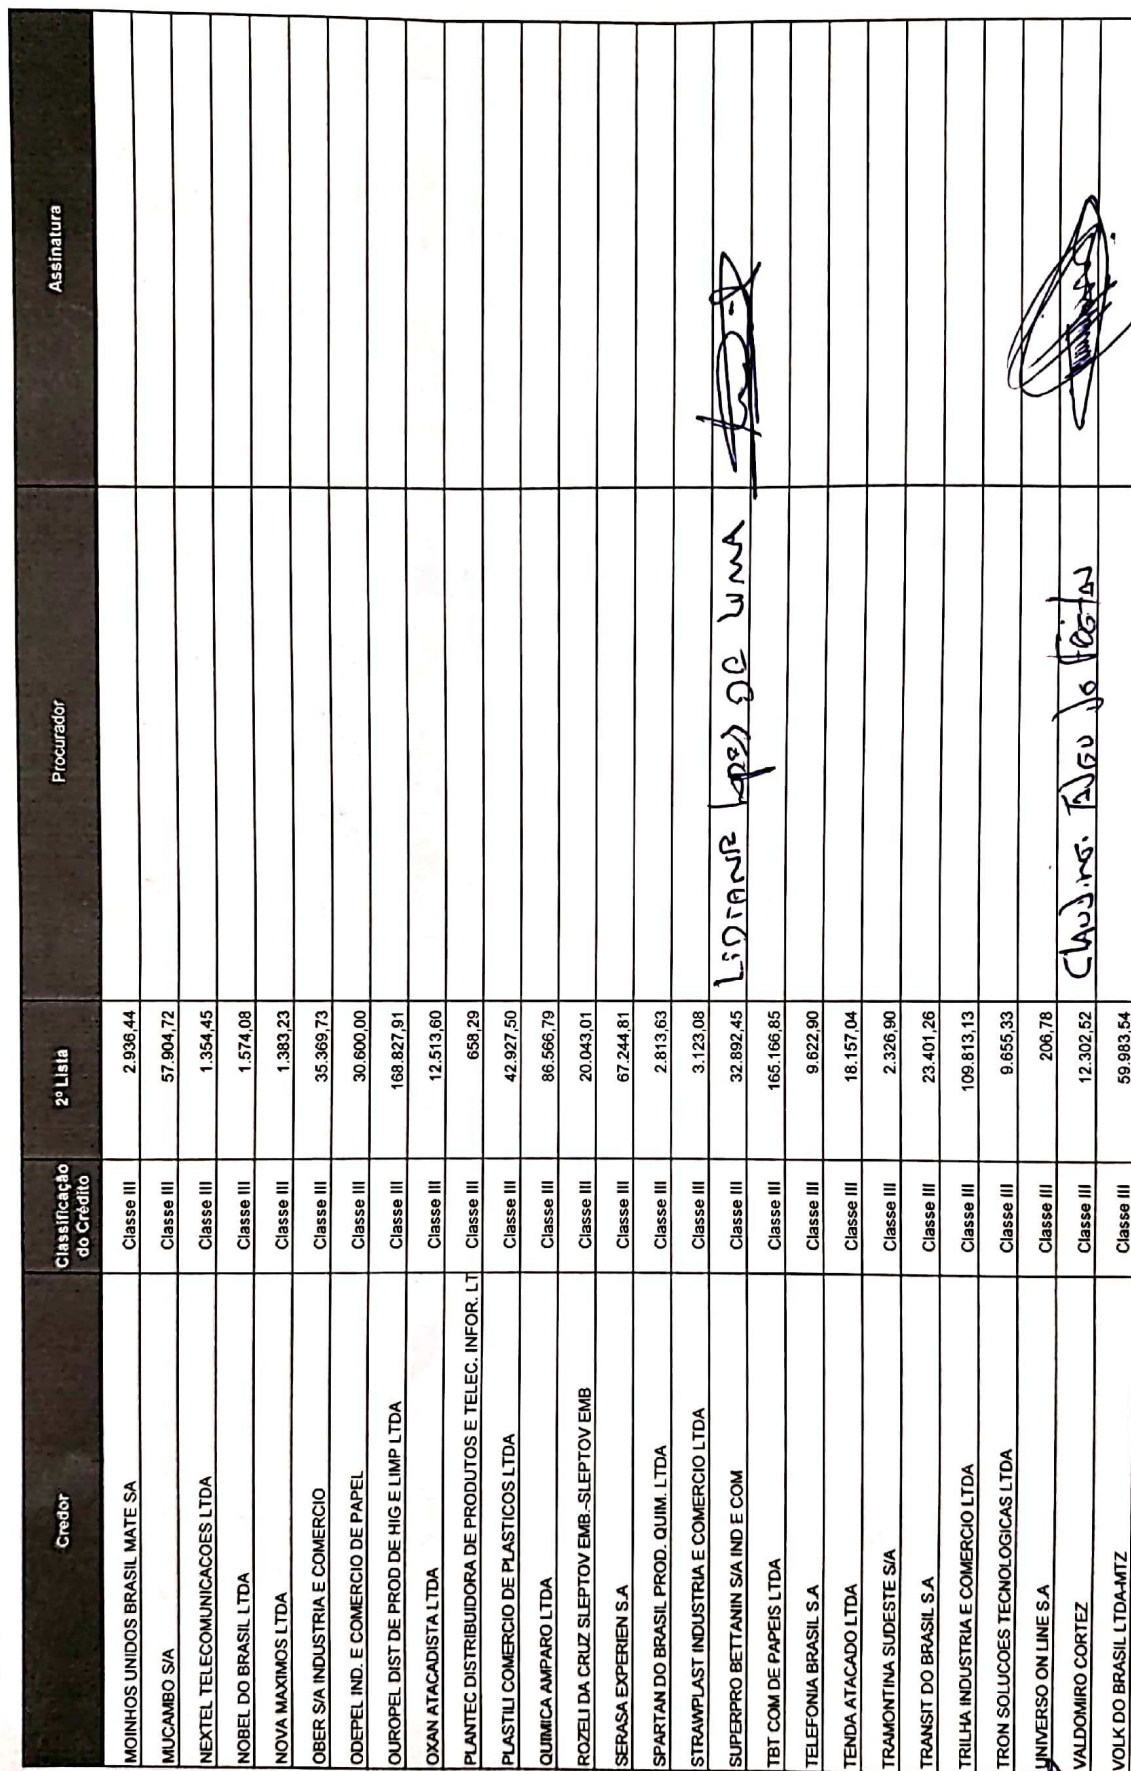 Credor Classificação do Crédito 2º Lista Procurador Assinatura
MOINHOS UNIDOS BRASIL MATE SA Classe III 2.936,44
MUCAMBO S/A Classe III 57.904,72
NEXTEL TELECOMUNICACOES LTDA Classe III 1.354,45
NOBEL DO BRASIL LTDA Classe III 1.574,08
NOVA MAXIMOS LTDA Classe III 1.383,23
OBER S/A INDUSTRIA E COMERCIO Classe III 35.369,73
ODEPEL IND. E COMERCIO DE PAPEL Classe III 30.600,00
OUROPEL DIST DE PROD DE HIG E LIMP LTDA Classe III 168.827,91
OXAN ATACADISTA LTDA Classe III 12.513,60
PLANTEC DISTRIBUIDORA DE PRODUTOS E TELEC. INFOR. LT Classe III 658,29
PLASTILI COMERCIO DE PLASTICOS LTDA Classe III 42.927,50
QUIMICA AMPARO LTDA Classe III 86.566,79
ROZELI DA CRUZ SLEPTOV EMB.-SLEPTOV EMB Classe III 20.043,01
SERASA EXPERIEN S.A Classe III 67.244,81
SPARTAN DO BRASIL PROD. QUIM. LTDA Classe III 2.813,63
STRAWPLAST INDUSTRIA E COMERCIO LTDA Classe III 3.123,08
SUPERPRO BETTANIN S/A IND E COM Classe III 32.892,45 LIDIANE Lopes DE LIMA
TBT COM DE PAPEIS LTDA Classe III 165.166,85
TELEFONIA BRASIL S.A Classe III 9.622,90
TENDA ATACADO LTDA Classe III 18.157,04
TRAMONTINA SUDESTE S/A Classe III 2.326,90
TRANSIT DO BRASIL S.A Classe III 23.401,26
TRILHA INDUSTRIA E COMERCIO LTDA Classe III 109.813,13
TRON SOLUCOES TECNOLOGICAS LTDA Classe III 9.655,33
UNIVERSO ON LINE S.A Classe III 206,78
VALDOMIRO CORTEZ Classe III 12.302,52
VOLK DO BRASIL LTDA-MTZ Classe III 59.983,54